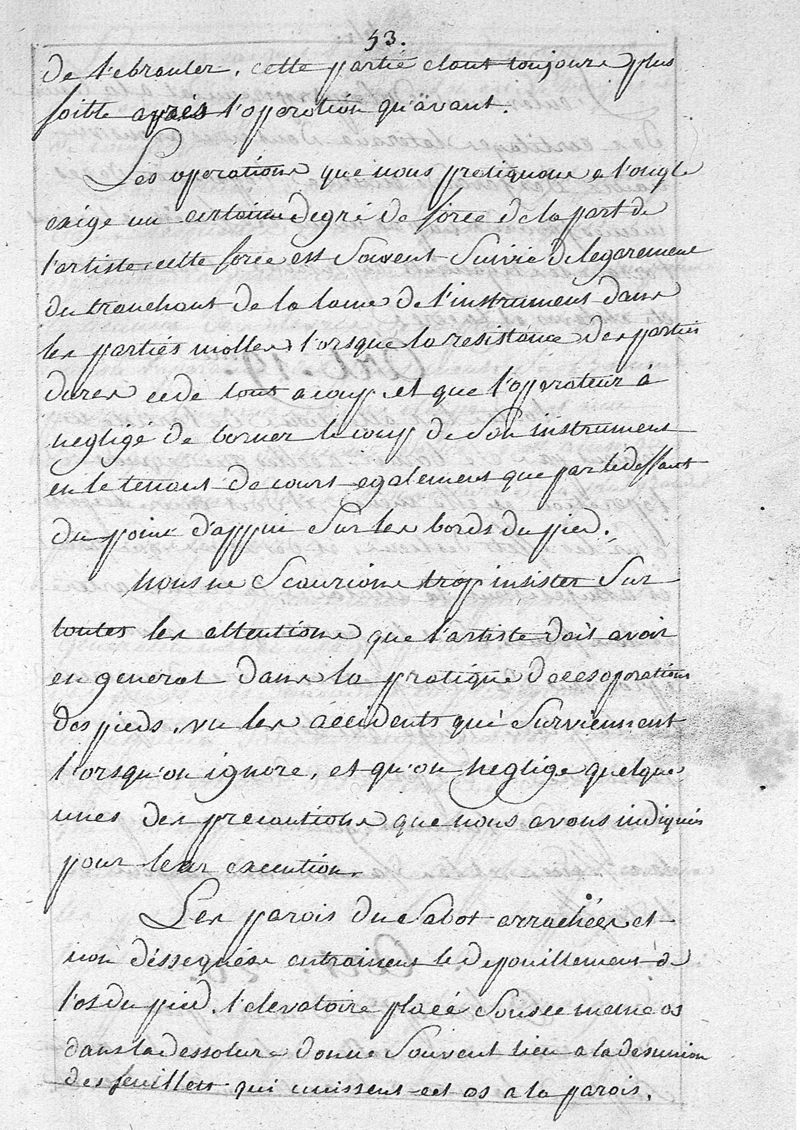 53.
de l'ebranler, cette partie etant toujours plus
foible apres l'operation qu'avant.
Les operations que nous pratiquons a l'ongle
exige un certaine degré de force de la part de
l'artiste, cette force est souvent suivie de legarement
du tranchant de la lame de l'instrument dans
les parties molles, l'orsque la resistance des parties
dures cede tout a coup, et que l'operateur à
negligé de borner le coup de son instrument
en le tenant de court egalement que par le deffaut
du point d'appui sur les bords du pied.
Nous ne scaurions trop insister sur
toutes les attentions que l'artiste doit avoir
en general dans la pratique de ces operations
des pieds, vu les accidents qui surviennent
l'orsqu'on ignore, et qu'on neglige quelque
unes des precautions que nous avons indiqués
pour leur execution.
Les parois du sabot arrachées et
non déssequés entrainent le depouillement de
l'os du pied, l'elevatoire placé sous ce meme os
dans la dessolure donne souvent lieu a la desunion
des feuillets qui unissent cet os a la parois.